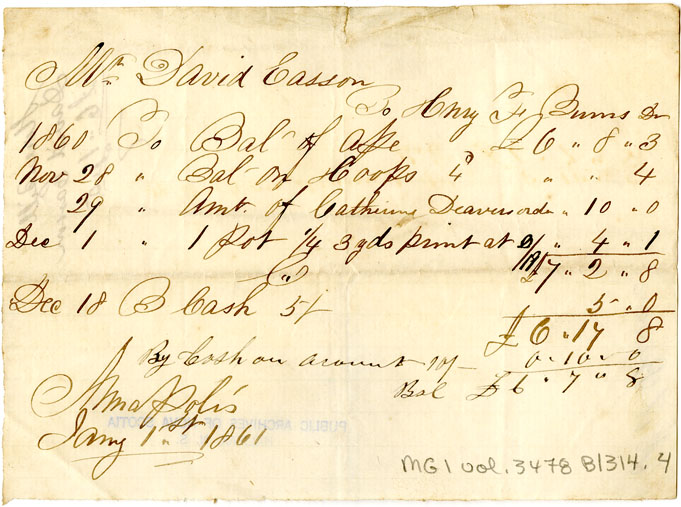 Mr David Easson
To Hnry F Burns Dr
1860 To Bal of a/c £6 " 8 " 3
Nov 28 " Bal on Hoops 4d " " 4
29 " Amt. of Catherine Deavers order " 10 " 0
Dec 1 " 1 Pot 1/4 3 yds print at 11d " 4 " 1
£7 " 2 " 8
Dec 18 B Cash 5/ 5 " 0
£6 " 17 8
By Cash on acount 10/- 0 " 10 " 0
Bal £6 " 7 " 8
Annapolis
Jany 1st 1861
PUBLIC ARCHIVES OF NOVA SCOTIA
MG1 vol. 3478 B1314.4